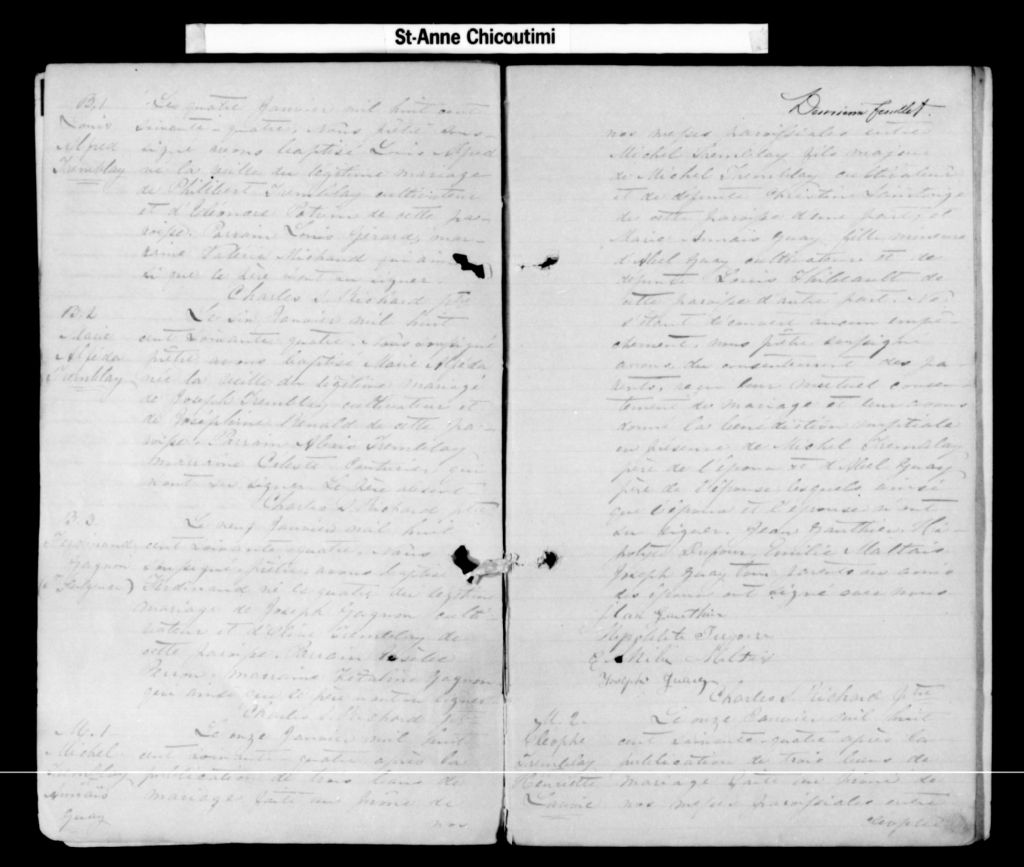 St-Anne Chicoutimi
B. 1
Louis
Alfred
Tremblay
Le quatre Janvier mil huit cent
soixante-quatre, Nous prêtre sous-
signé avons baptisé Louis Alfred
né la veille du légitime mariage
de Philibert Tremblay cultivateur
et d'Eléonore Potvin de cette pa-
roisse. Parrain Louis Gérard, mar-
raine Valérie Michaud qui ain-
si que le père n'ont su signer.
Charles S. Richard ptre
B. 2
Marie
Alféda
Tremblay
Le six Janvier mil huit
cent soixante quatre, Nous soussigné
prêtre avons baptisé Marie Alféda
née la veille du légitime mariage
de Joseph Tremblay cultivateur et
de Joséphine Renald de cette pa-
roisse. Parrain Alexis Tremblay
marraine Celeste qui
n'ont su signer. Le père absent
Charles S. Richard ptre
B. 3
Ferdinand
Gagnon
Le neuf Janvier mil huit
cent soixante quatre, Nous
soussigné prêtre avons baptisé
Ferdinand né le quatre du légitime
mariage de Joseph Gagnon culti-
vateur et d' Tremblay de
cette paroisse. Parrain
marraine Gagnon
qui ainsi que le père n'ont su signer
Charles S. Richard ptre
M. 1
Michel
Tremblay
Annaïs
Guay
Le onze Janvier mil huit
cent soixante-quatre après la
publication de trois bans de
mariage faite au prône de
nos
feuillet.
nos messes paroissiales entre
Michel Tremblay fils majeur
de Michel Tremblay cultivateur
et de défunte Christine
de cette paroisse d'une part, et
Marie Annaïs Guay fille mineure
d'Abel Guay cultivateur et de
défunte Louise Thibeault de
cette paroisse d'autre part. Ne
s'étant découvert aucun empê-
chement, nous prêtre soussigné
avons, du consentement des pa-
rents, reçu leur mutuel consen-
tement de mariage et leur avons
donné la bénédiction nuptiale
en présence de Michel Tremblay
père de l'époux et d'Abel Guay
père de l'épouse lesquels ainsi
que l'époux et l'épouse n'ont
su signer. Jean Gauthier, Hip-
polyte Dufour, Emilie Maltais
Joseph Guay tous parents ou amis
des époux ont signé avec nous
Jean Gauthier
Hippolite Dufour
Emilie Maltais
Joseph Guay
Charles S. Richard ptre
M. 2.
Cléophe
Tremblay
Henriette
Lavoie
Le onze Janvier mil huit
cent soixante-quatre après la
publication de trois bans de
mariage faite au prône de
nos messes paroissiales entre
Cléophe